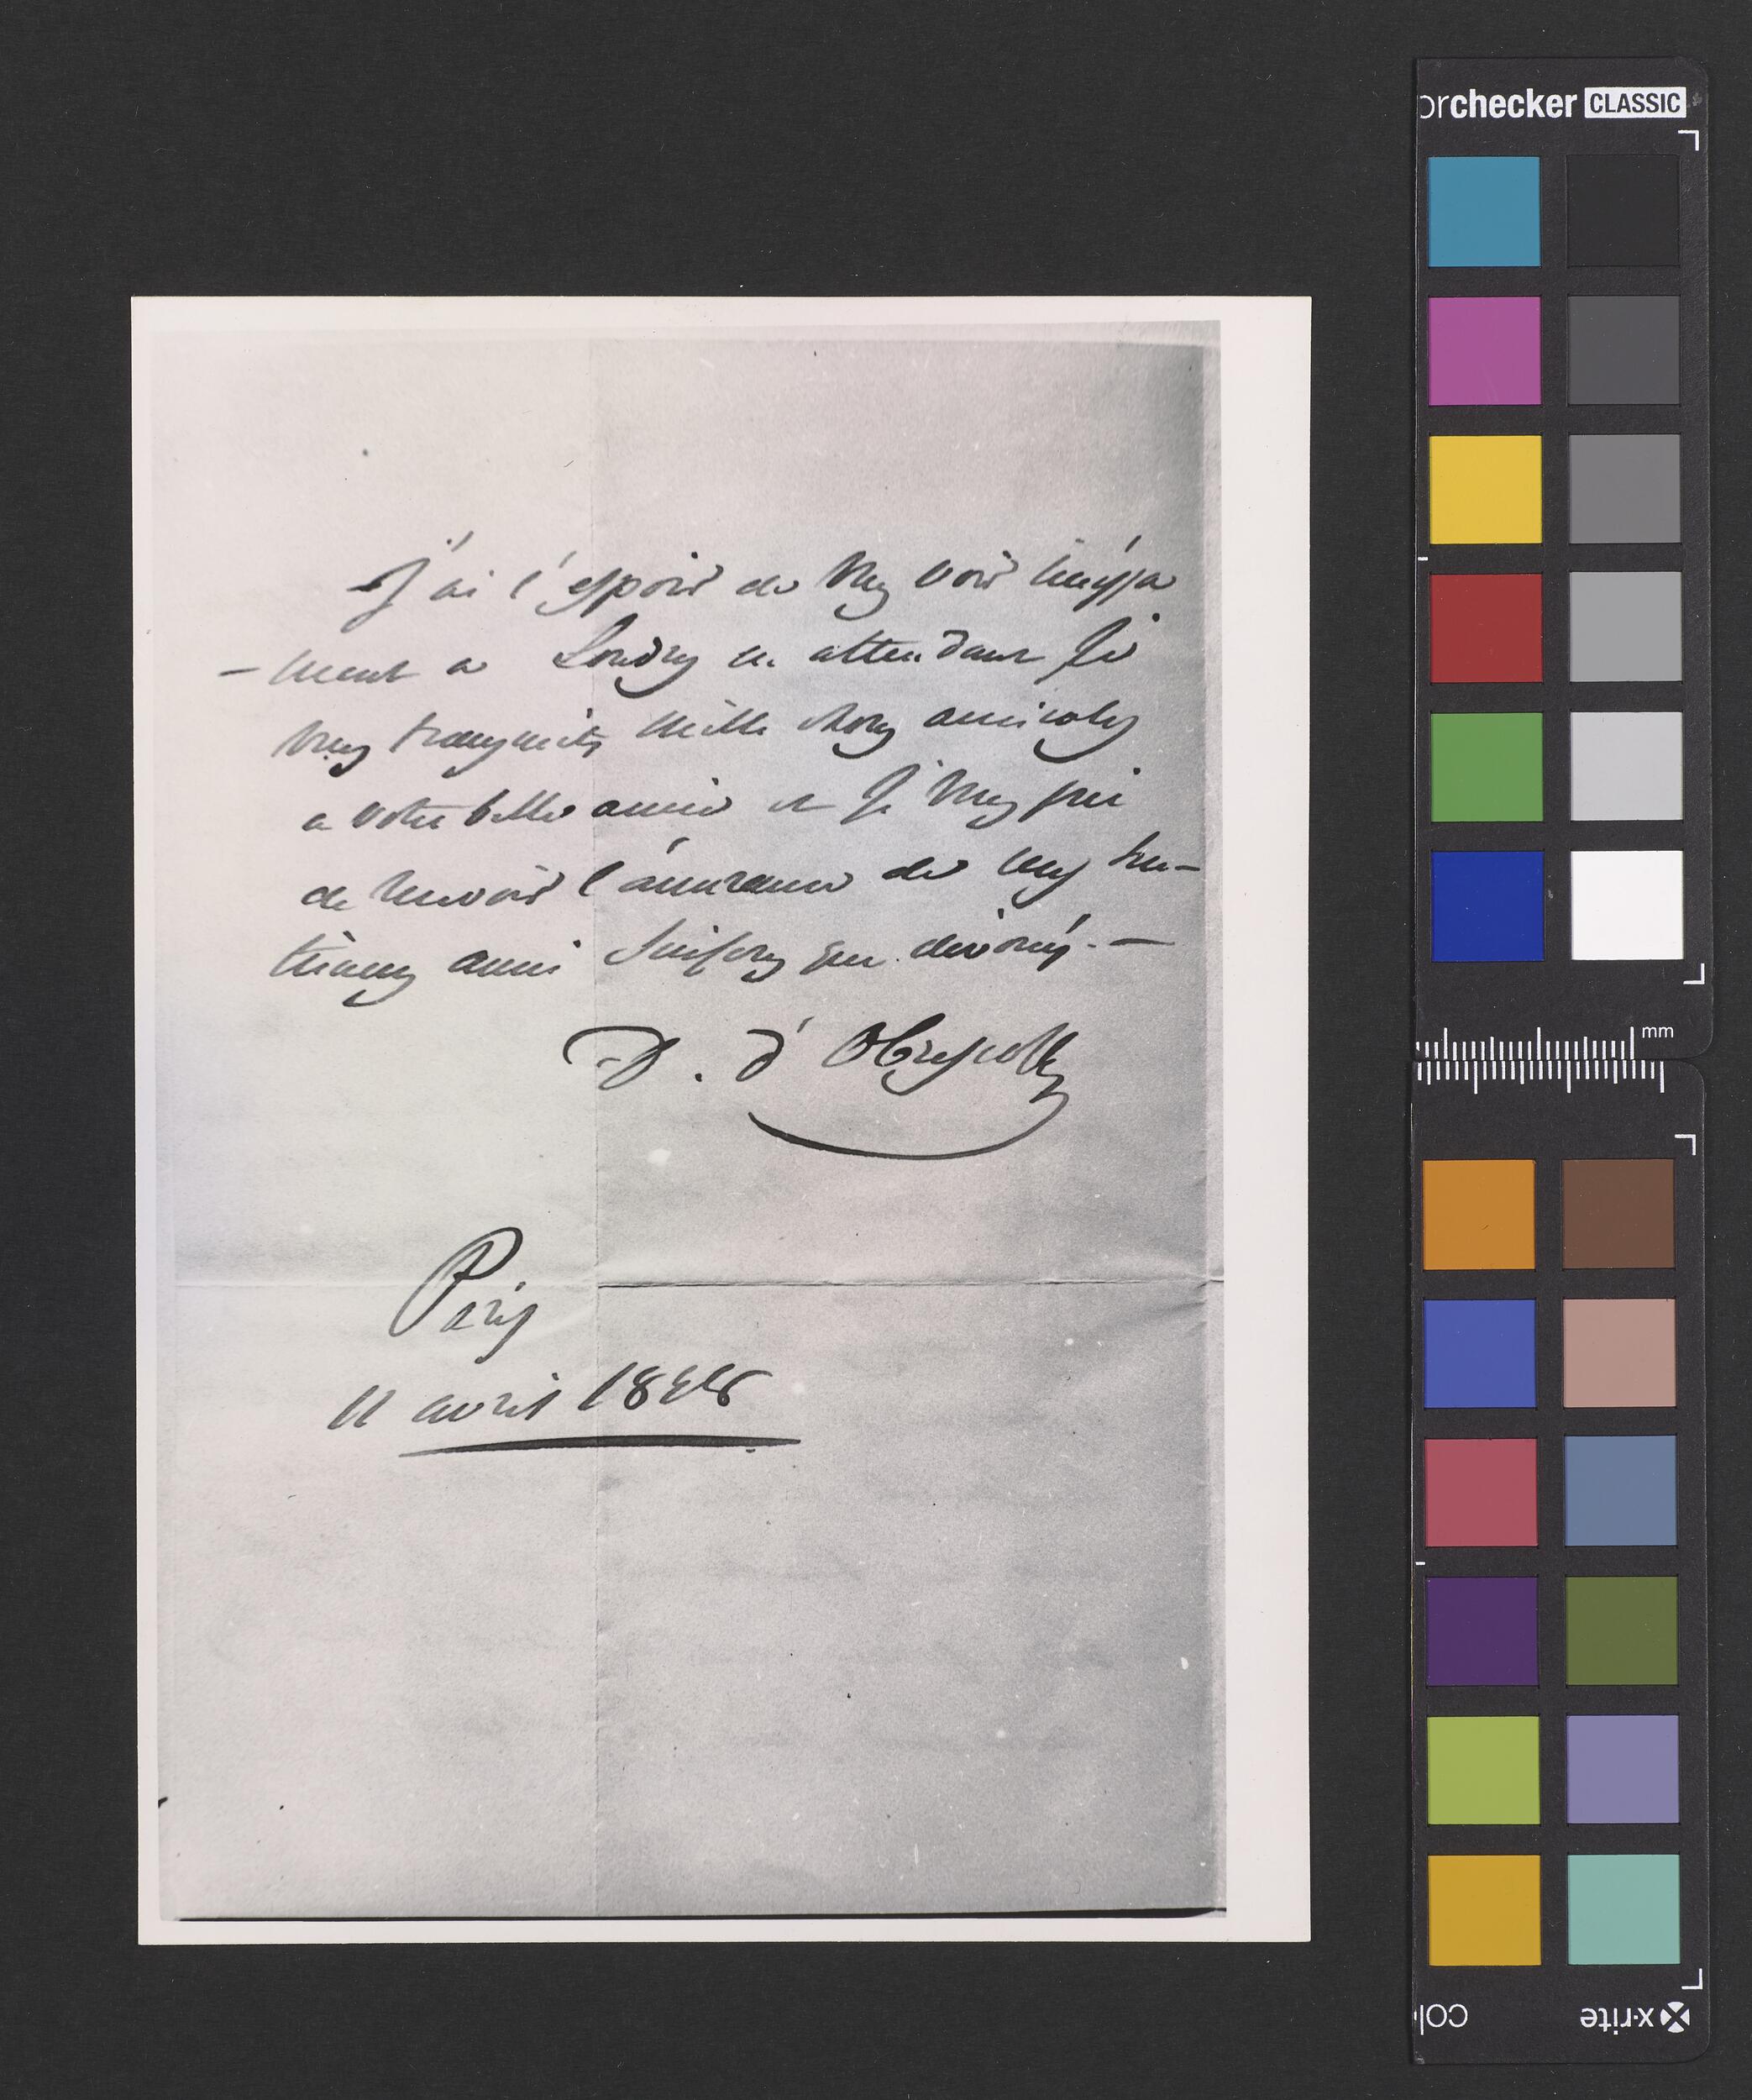 orchecker CLASSIC
J'ai l'espoir de vous voir incessa
-ment a Londres en attendant je
vous transmets mille choses amicales
a votre belle amie et je vous prie
de recevoir l'assurance de mes sen-
timens aussi sincères que dévoués. —
D. d'Obrescoff
Paris
11 avril 1848
mm
x-rite
col